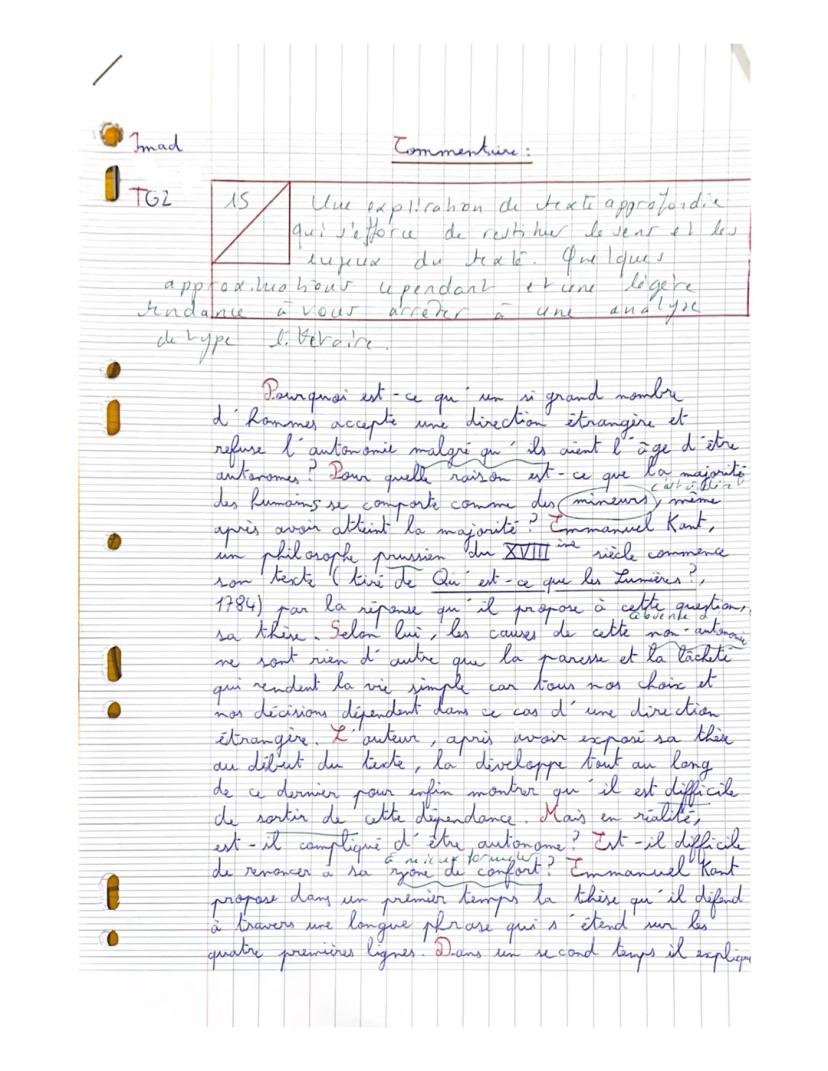 Imad
Commentaire :
TG2
15
Une explication de texte approfondie
qui s'efforce de restituer le sens et les
enjeux du texte. Quelques
approximations cependant et une légère
tendance à vous arrêter à une analyse
de type littéraire.
Pourquoi est-ce qu'un si grand nombre
d'hommes accepte une direction étrangère et
refuse l'autonomie malgré qu'ils aient l'âge d'être
autonomes ? Pour quelle raison est-ce que la majorité
des humains se comporte comme des mineurs, même
après avoir atteint la majorité ? Emmanuel Kant,
un philosophe prussien du XVIII ème siècle commence
son texte (tiré de Qu'est-ce que les Lumières ?,
1784) par la réponse qu'il propose à cette question,
sa thèse. Selon lui, les causes de cette non-autonomie
ne sont rien d'autre que la paresse et la lâcheté
qui rendent la vie simple car tous nos choix et
nos décisions dépendent dans ce cas d'une direction
étrangère. L'auteur, après avoir exposé sa thèse
au début du texte, la développe tout au long
de ce dernier pour enfin montrer qu'il est difficile
de sortir de cette dépendance. Mais en réalité,
est-il compliqué d'être autonome ? Est-il difficile
à mieux formuler
de renoncer à sa zone de confort ? Emmanuel Kant
propose dans un premier temps la thèse qu'il défend
à travers une longue phrase qui s'étend sur les
quatre premières lignes. Dans un second temps il explique